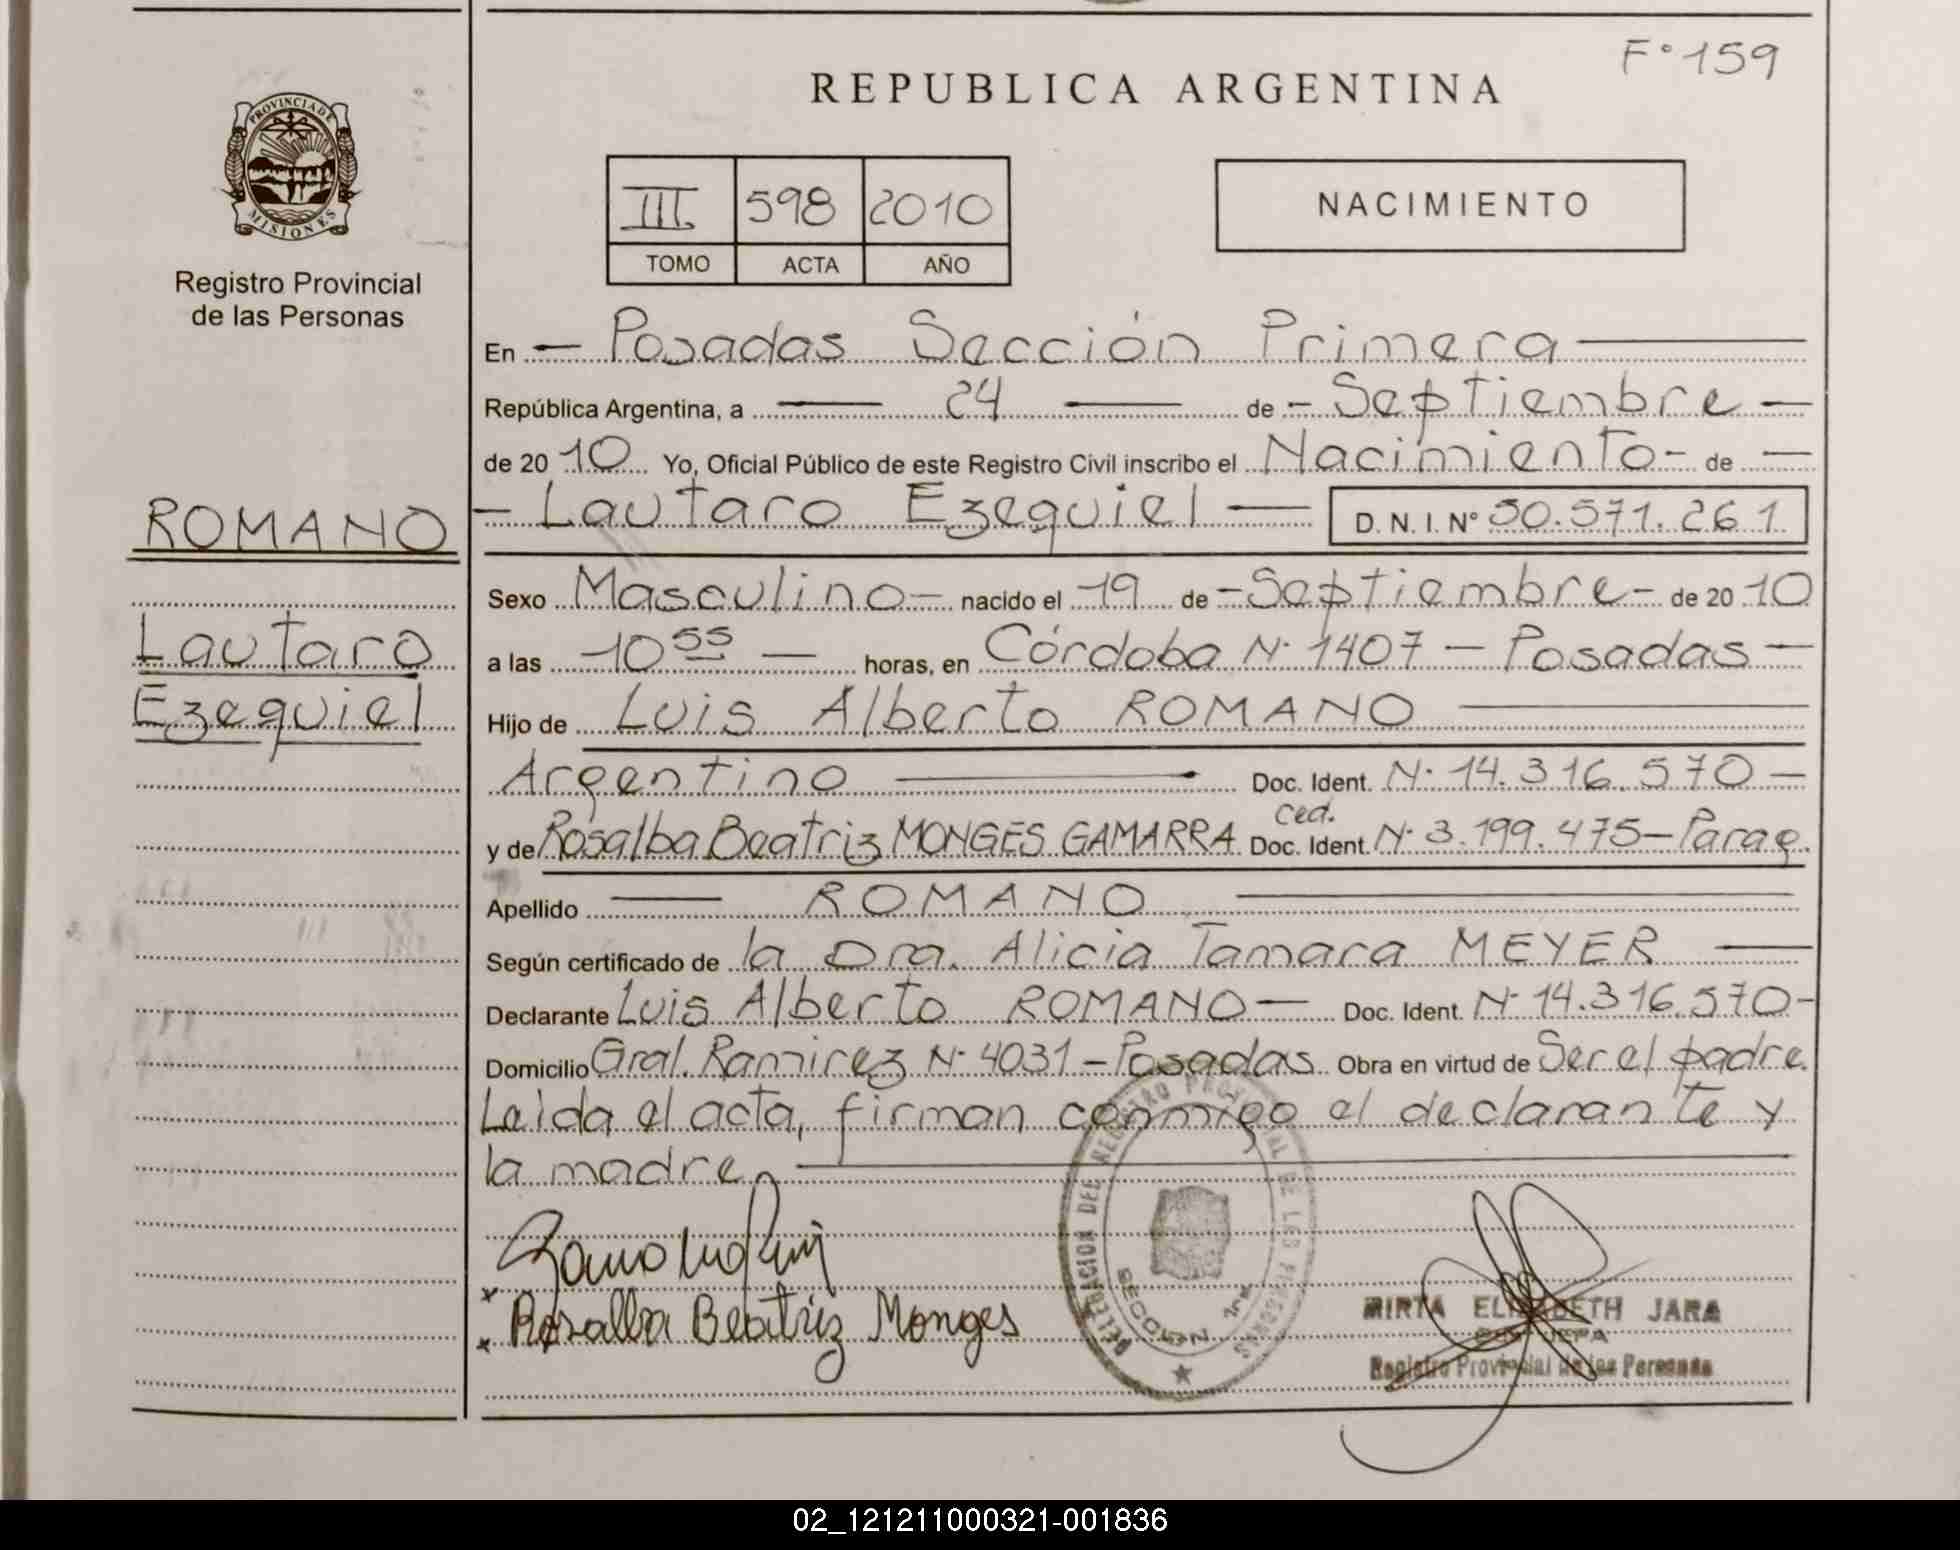 F° 159
REPUBLICA ARGENTINA
PROVINCIA DE
MISIONES
Registro Provincial
de las Personas
III. 598 2010
TOMO ACTA AÑO
NACIMIENTO
En — Posadas Sección Primera —
República Argentina, a — 24 — de - Septiembre —
de 20 10 Yo, Oficial Público de este Registro Civil inscribo el Nacimiento - de —
- Lautaro Ezequiel — D. N. I. N° 50.571.261
ROMANO
Lautaro
Ezequiel
Sexo Masculino - nacido el 19 de - Septiembre - de 20 10
a las 10 55 — horas, en Córdoba N· 1407 - Posadas —
Hijo de Luis Alberto ROMANO —
Argentino — Doc. Ident. N· 14.316.570 —
ced.
y de Rosalba Beatriz MONGES GAMARRA Doc. Ident. N· 3.199.475 - Parag.
Apellido — ROMANO —
Según certificado de la Dra. Alicia Tamara MEYER —
Declarante Luis Alberto ROMANO — Doc. Ident. N· 14.316.570 -
Domicilio Gral. Ramirez N· 4031 - Posadas Obra en virtud de Ser el padre.
Leida el acta, firman conmigo el declarante y
la madre. —
x
x Rosalba Beatriz Monges
DELEGACION DEL REGISTRO PROVINCIAL DE LAS PERSONAS
SECCION 1ra
MIRTA ELIZABETH JARA
Registro Provincial de las Personas
02_121211000321-001836